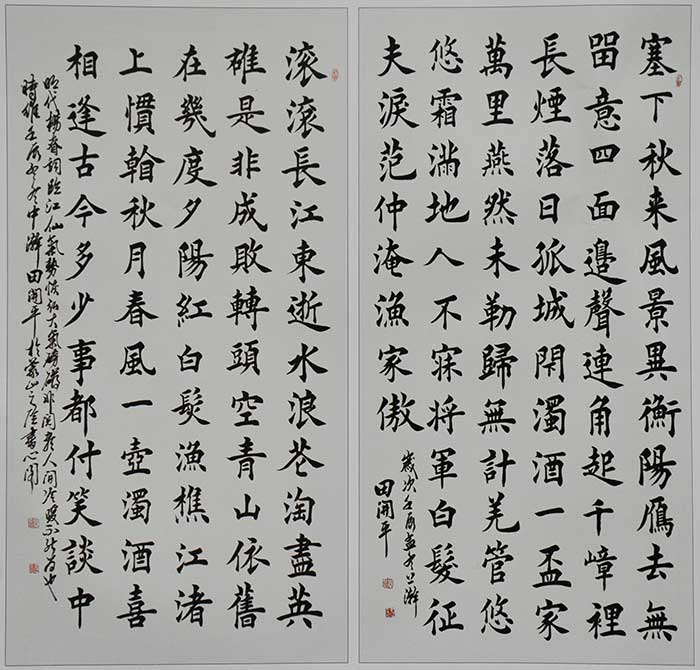 塞下秋来風景異衡陽鴈去無
畱意四面邉聲連角起千嶂裡
長煙落日孤城閇濁酒一盃家
萬里燕然未勒歸無計羌管悠
悠霜滿地人不寐将軍白髮征
夫淚范仲淹漁家傲
歲次壬辰孟冬上澣
田開平
滚滚長江東逝水浪芲淘盡英
雄是非成敗轉頭空青山依舊
在幾度夕陽紅白髮漁樵江渚
上慣看秋月春風一壺濁酒喜
相逢古今多少事都付笑談中
明代楊慎詞臨江仙氣勢恢弘大氣磅礴非閱老人間冷暖不能為也
時維壬辰之冬中澣田開平於蒙山之陰書心閣